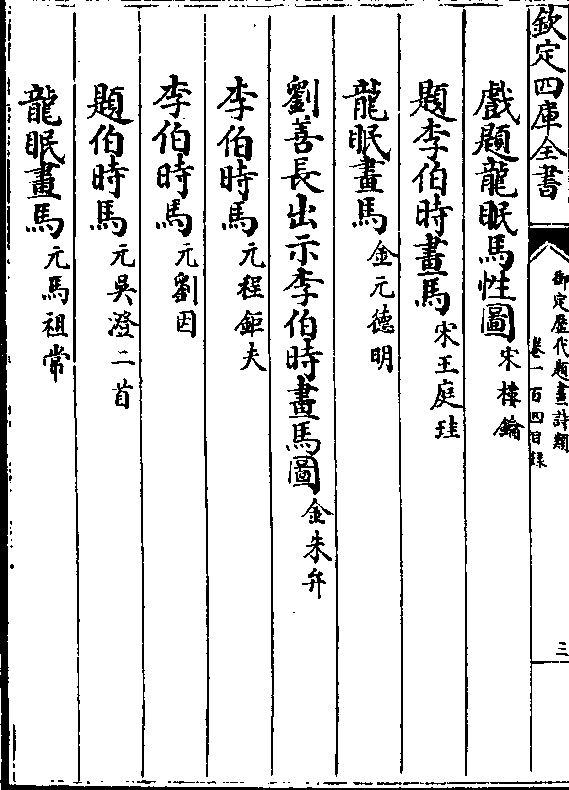 欽定四庫全書
御定歷代題畫詩類
卷一百四目録
三
戲題龍眠馬性圖宋樓鑰
題李伯時畫馬宋王庭珪
龍眠畫馬金元德明
劉善長出示李伯時畫馬圖金朱弁
李伯時馬元程鉅夫
李伯時馬元劉因
題伯時馬元吳澄二首
龍眠畫馬元馬祖常